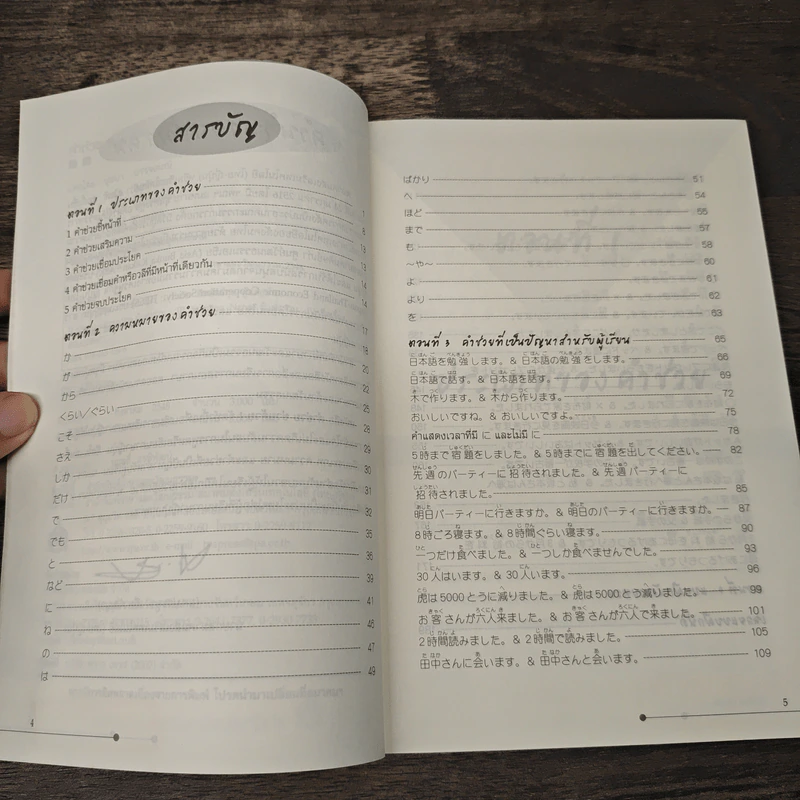 สารบัญ
ตอนที่ 1 ประเภทของคำช่วย 7
1 คำช่วยชี้หน้าที่ 8
2 คำช่วยเสริมความ
3 คำช่วยเชื่อมประโยค 13
4 คำช่วยเชื่อมคำหรือวลีที่มีหน้าที่เดียวกัน 14
5 คำช่วยจบประโยค 14
ตอนที่ 2 ความหมายของคำช่วย 17
か 18
が 20
から 22
くらい/ぐらい 25
こそ 28
さえ 29
しか 30
だけ 31
で 32
でも 35
と 36
など 39
に 41
ね 46
の 47
は 49
4
ばかり 51
へ 54
ほど 55
まで 57
も 58
～や～ 60
よ 61
より 62
を 63
ตอนที่ 3 คำช่วยที่เป็นปัญหาสำหรับผู้เรียน 65
日本語を勉強します。& 日本語の勉強をします。 66
日本語で話す。& 日本語を話す。 69
木で作ります。& 木から作ります。 72
おいしいですね。& おいしいですよ。 75
คำแสดงเวลาที่มี に และไม่มี に 78
5時まで宿題をしました。& 5時までに宿題を出してください。 82
先週のパーティーに招待されました。& 先週パーティーに
招待されました。 85
明日パーティーに行きますか。& 明日のパーティーに行きますか。 87
8時ごろ寝ます。& 8時間ぐらい寝ます。 90
一つだけ食べました。& 一つしか食べませんでした。 93
30人はいます。& 30人います。 96
虎は5000とうに減りました。& 虎は5000とう減りました。 99
お客さんが六人来ました。& お客さんが六人で来ました。 101
2時間読みました。& 2時間で読みました。 105
田中さんに会います。& 田中さんと会います。 109
5